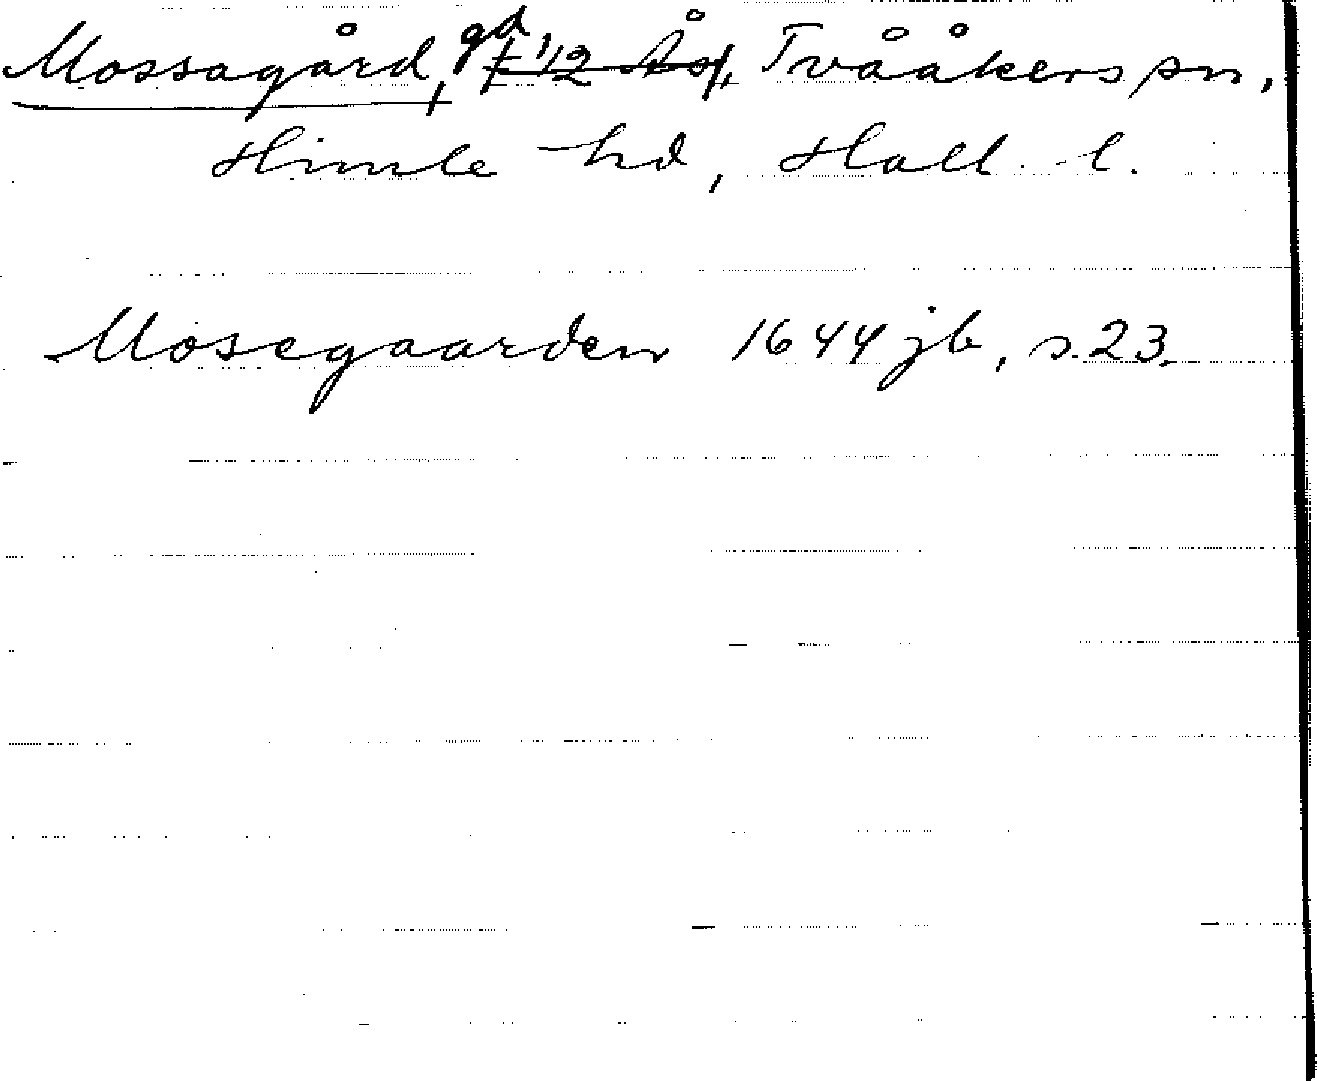 Mossagård, gd 1/2 Ås, Tvååkers sn,
Himle hd, Hall. l.
Mosegaarden 1644 jb, s. 23.